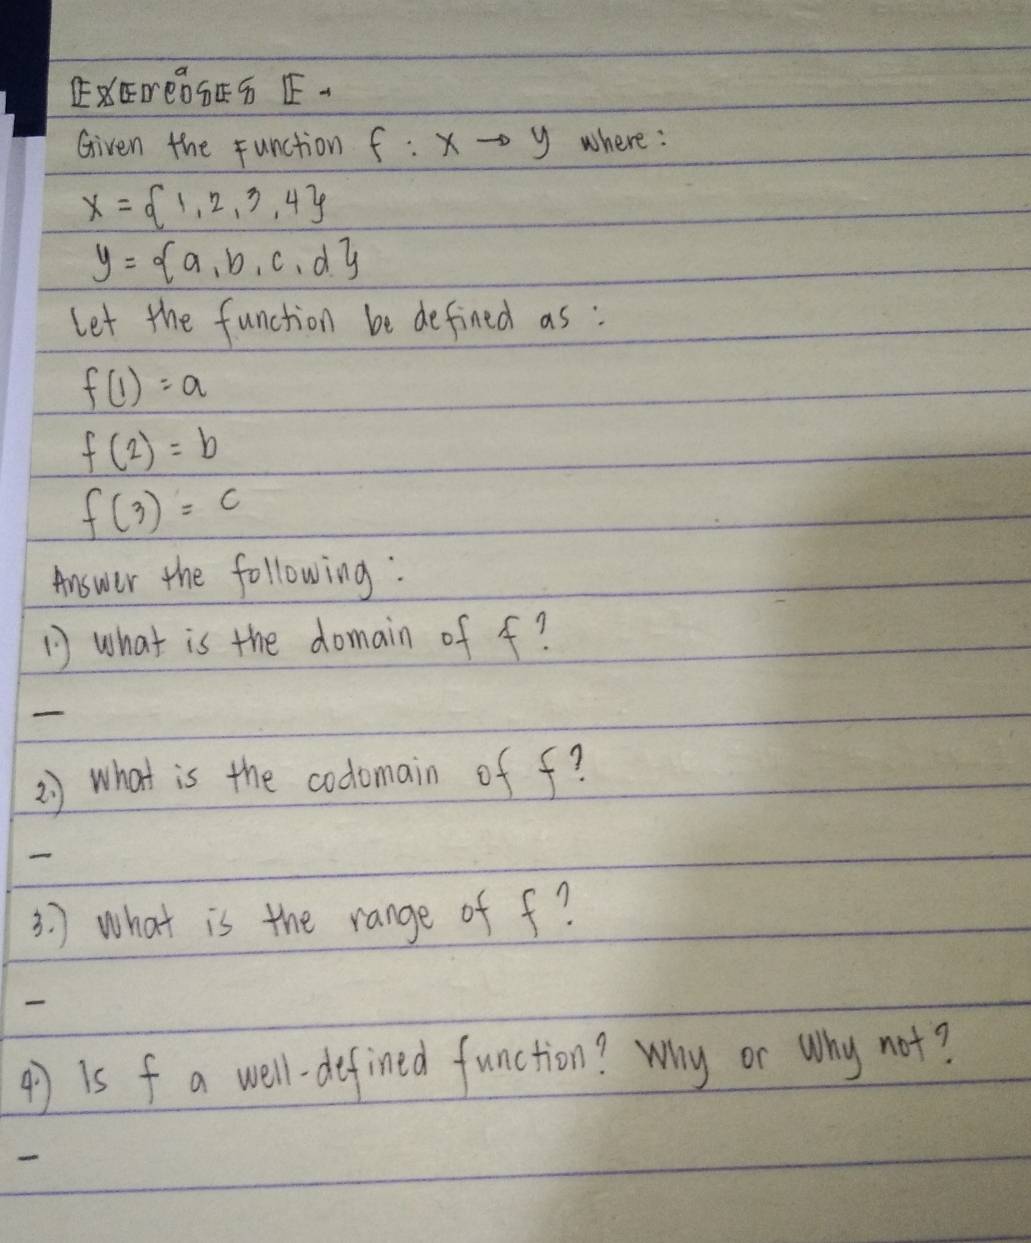 Exercises E.
Given the Function f : X → y where:
X = {1, 2, 3, 4}
y = {a, b, c, d}
Let the function be defined as :
f(1) = a
f(2) = b
f(3) = c
Answer the following :
1.) What is the domain of f?
–
2.) What is the codomain of f?
–
3.) What is the range of f?
–
4.) Is f a well-defined function? Why or Why not?
–